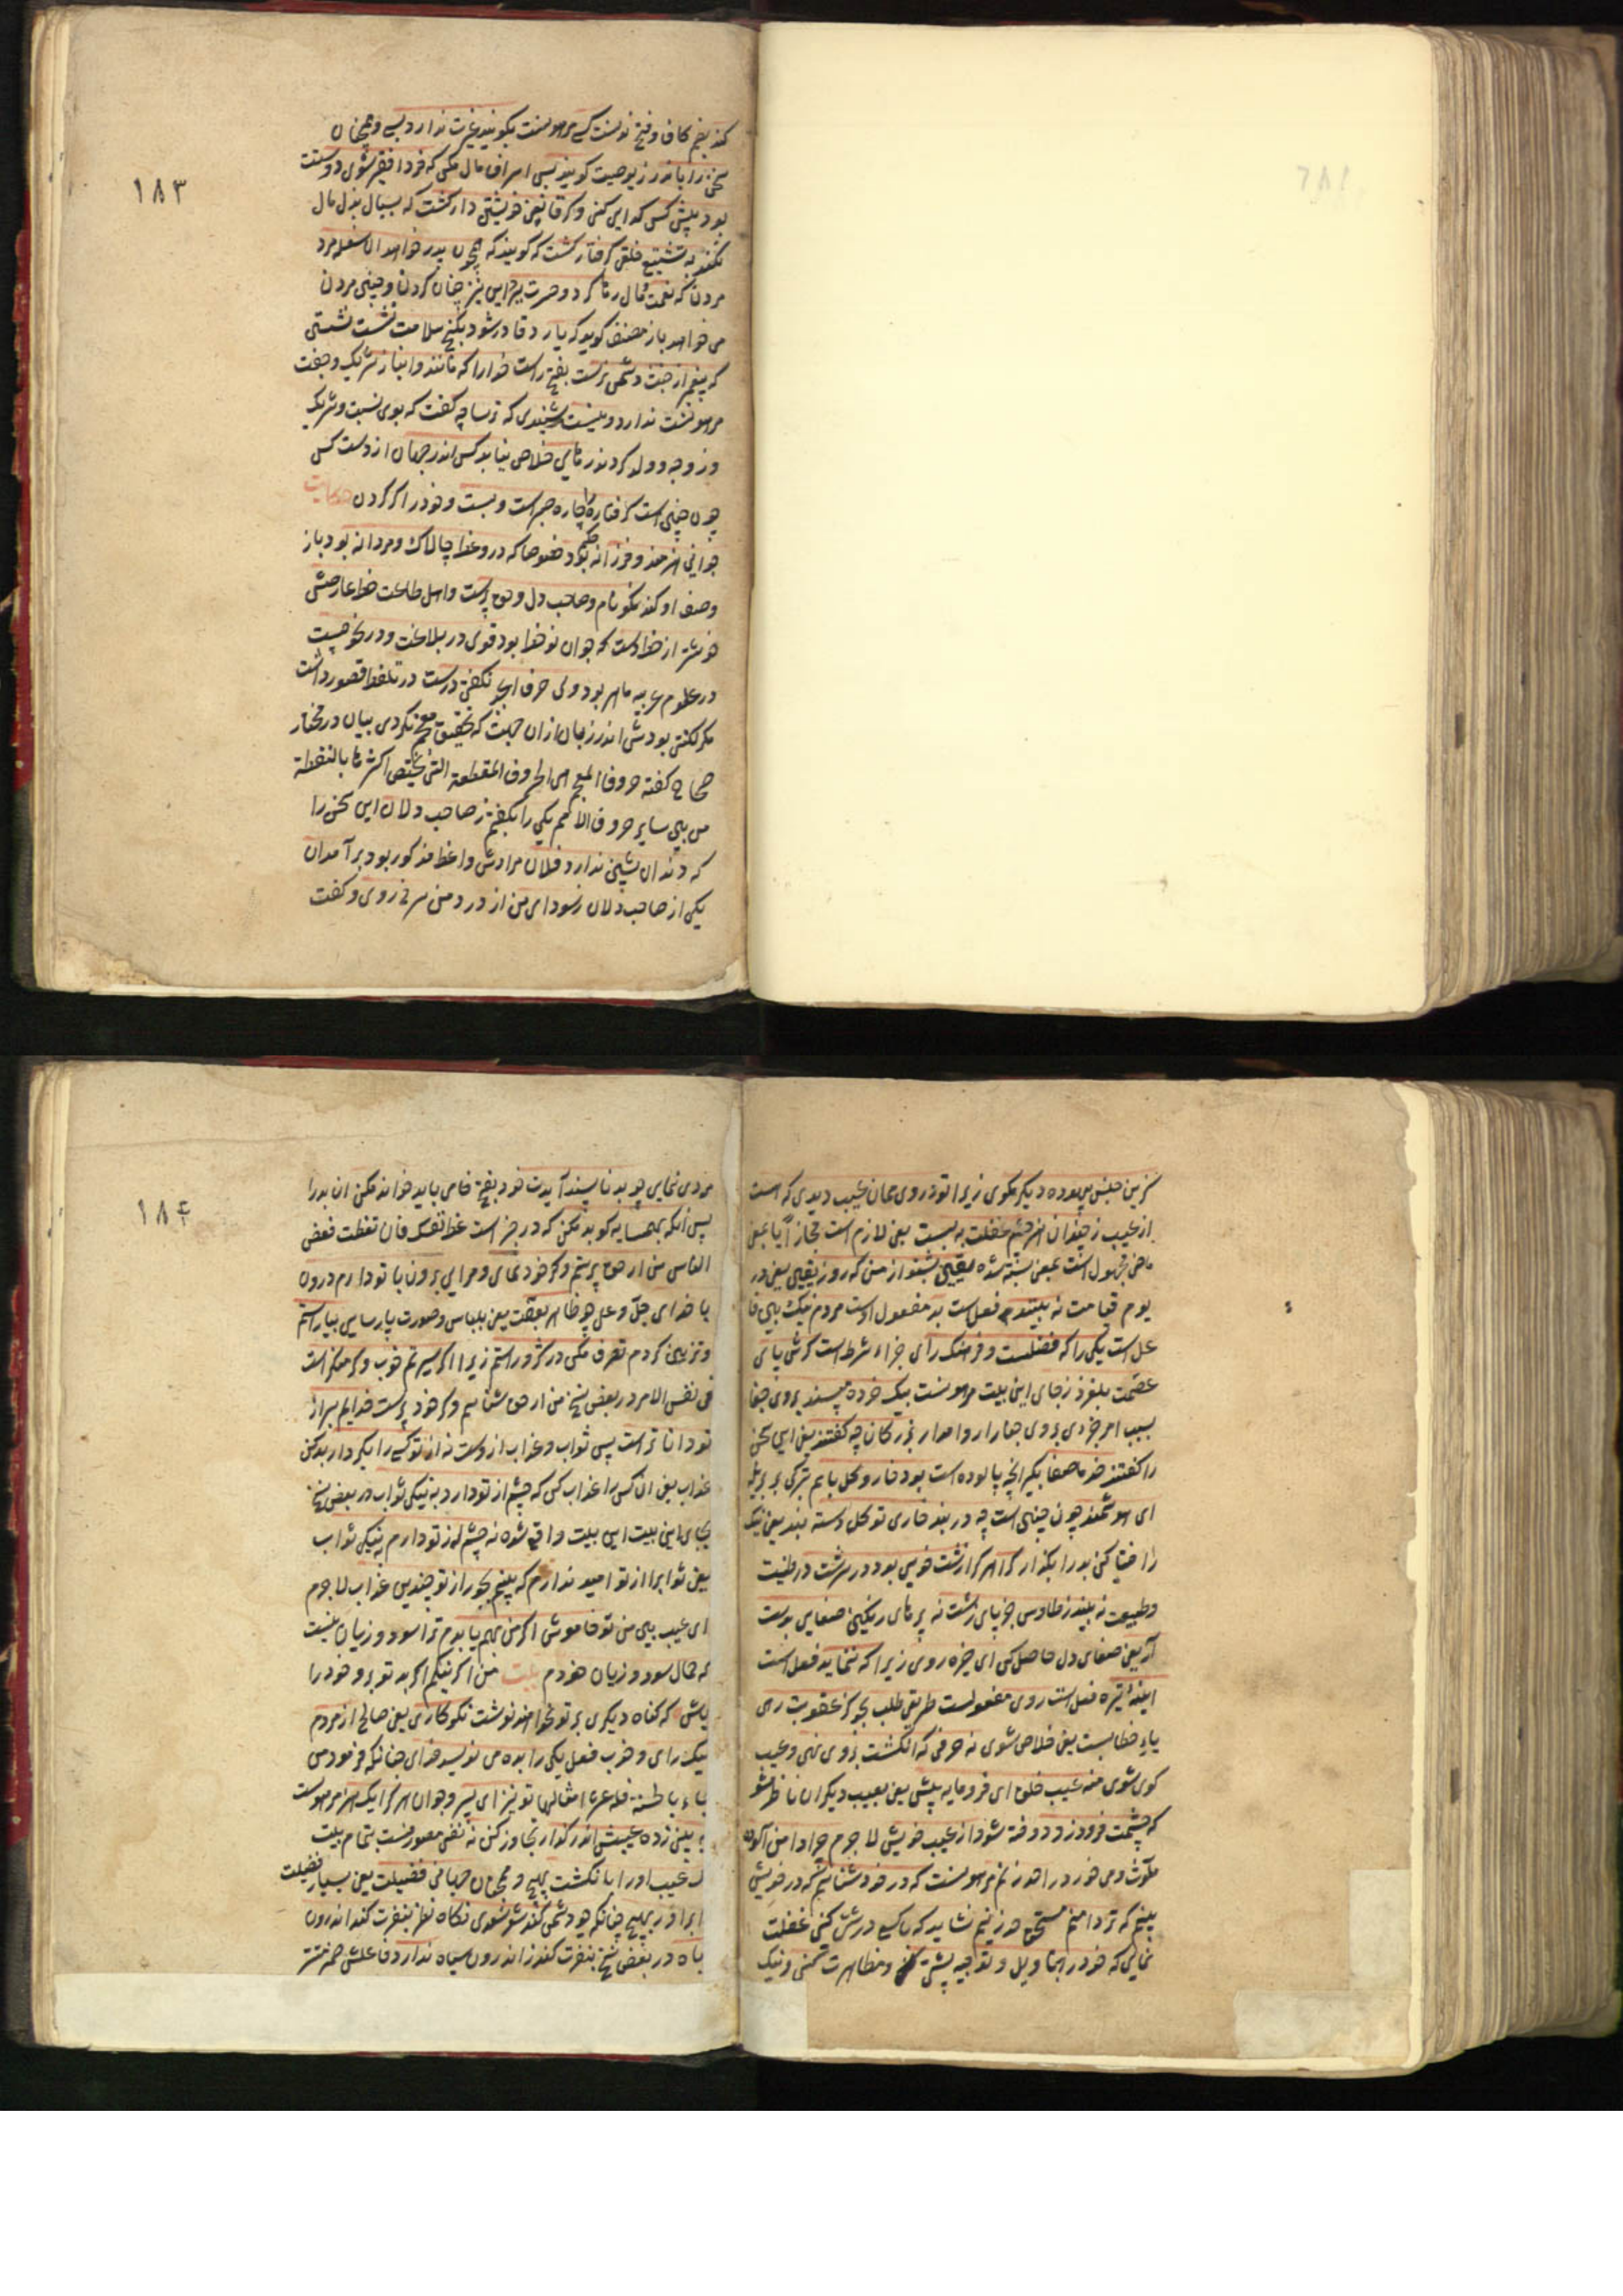 ۱۸۳
کند بضم کاف و فتح نونست کسی مرهونست بکویند غیرت ندارد بسی و همچنان
سخی را باندرز نوصیت کویند بس اسراف مال مکن که فردا فقیر شوی دو دستت
بود پیش کس کدایی کنی و کر قانعی خویشتن دار کشت که بسیال بذل مال
نکند به تشنیع خلقی کرفتار کشت که کویند که همچون پدر خواهد ان سفله مرد
مردن که نعمت و مال رها کرد و حسرت ببرد این نیز چنان کردن و چنین مردن
می خواهد باز مصنف کوید که یارد قادر شود بکنج سلامت نشست نشستن
که پیغمبر از خبث دشمن نرست بفتح راست خدا را که مانند و انباز شریک و جفت
مرهونست ندارد و نیست شنیدی که ترسا چه کفت که بوی نسبت و شریک
و زوجه و ولد کردند رهایی خلاص نیابد کس اندر جهان از دست کس
چون چنین است کرفتار را چاره صبر است و بست و خود را کر کردن حکایت
جوانی هنرمند و فرزانه بود حکیم خصوصا که در وعظ چالاک و مردانه بود باز
وصف او کند نکونام و صاحب دل و حق پرست و اهل طاعت خط عارضش
خوشتر از خط دست که جوان نوخط بود قوی در بلاغت و در نحو چست
در علوم عربیه ماهر بود ولی حرف ابجد نکفتی درست در تلفظ قصور داشت
مکر لکنتی بودش اندر زبان از ان جهت که تحقیق معجم نکردی بیان در مختار
صحاح کفته حروف المعجم هی الحروف المقطعة التی یختص اکثرها بالنقطة
من بین سایر حروف الامم یکی را بکفتم ز صاحب دلان این سخن را
که دندان پیشین ندارد فلان مرادش واعظ مذکور بود برآمد ان
یکی از صاحب دلان ز سودای من از درد من سرخ روی و کفت
کزین جنس بیهوده دیکر مکوی زیرا تو در وی همان عیب دیدی که هست
از عیب ز چندان هنر چشم عقلت به بست یعنی لازم است مجازا یا بمعنی
ماضی مجهول است بمعنی بسته شده یقین بشنو از من که روز یقین یعنی در
یوم قیامت نه بینند فعل است بد مفعول اوست مردم نیک بین فا
عل است یکی را که فضلست و فرهنک رای جزاء شرط است کرش پای
عصمت بلغزد ز جای این بیت مرهونست بیک خرده مپسند بر وی جفا
بسبب امر جزءی بر وی جفا را روا مدار بزرکان چه کفتند یعنی این سخن
را کفتند خذ ما صفا بکیر انچه پالوده است بود خار و کل با هم بترکی بر بریله
ای هوشمند چون چنین است چه در بند خاری تو کل دسته بند یعنی نیک
را ختیا کن بد را بکذار کرا هر کرا زشت خویی بود در سرشت در طینت
و طبیعت نه بیند ز طاوس جز پای زشت نه پرهای رنکین صفایی بدست
آر یعنی صفای دل حاصل کن ای خیره روی زیرا که ننماید فعل است
اینه تیره فعل است روی مفعولست طریقی طلب بجو کز عقوبت رهی
یاء خطابست یعنی خلاص شوی نه حرفی که انکشت بر وی نهی و عیب
کوی شوی منه عیب خلق ای فرومایه پیش یعنی بعیب دیکران ناظر مشو
که چشمت فرودوزد دوخته شود از عیب خویش لاجرم چرا دامن آلوده
ملوث و می خور در حد زنم مرهونست که در خود شناسم که در خویش
بینم که تر دامنم مستحق حد زنیم نشاید که با کسی درشتی کنی غفلت
نمایی که خود را بتاویل و توجیه پشتی کنی و مظاهرت کنی و نیک
۱۸۴
مردی نمایی چو بد ناپسند آیدت خود بفتح خا می باید خواند مکن ان بد را
پس انکه بهمسایه کو بد مکن که در خبر است عظ نفسک فان تعظت فعظ
الناس من ار حق پرستم و کر خود نمای و مرایی برون با تو دارم درون
با خدای جل و علی چو ظاهر بعفت یعنی بلباس و صورت پارسایی بیاراستم
و تزیین کردم تصرف مکن در کژ و راستم زیرا اکر سیرتم خوب و کر منکر است
فی نفس الامر در بعض نسخ من ار حق شناسم و کر خود پرست خدایم بسر از
تو داناتر است پس ثواب و عذاب از وست نه از تو کسی را بکردار بد کن
عذاب یعنی ان کس را عذاب کن که چشم از تو دارد به نیکی ثواب در بعض نسخ
بجای این بیت این بیت واقع شده نه چشم از تو دارم به نیکی ثواب
یعنی ثوابرا از تو امید ندارم که بینم بجور از تو چندین عذاب لاجرم
ای عیب بین من تو خاموش اکر من بهم یا بدم ترا سود و زیان نیست
که حمال سود و زیان خودم بیت من اکر نیکم اکر بد تو برو خود را
باش که کناه دیکری بر تو نخواهند نوشت نکوکاری یعنی صالح از مردم
نیک رای و خوب فعل یکی را به ده می نویسد خدای چنانکه فرمود من
جاء بالحسنة فله عشر امثالها تو نیز ای پسر و جوان هر کرا یک هنر مرهونست
ببینی ز ده عیبش اندر کذار تجاوز کن نه نفی مصور نست بتمام بیت
یک عیب اورا بانکشت پیچ و جهانی فضیلت یعنی بسیار فضیلت
ابراور بهیچ چنانکه چو دشمن کند شعر سعدی نکاه نظر بنفرت کند اندرون
تباه در بعض نسخ بنفرت کند ز اندرون سیاه ندارد فاعلش ضمیر مستتر